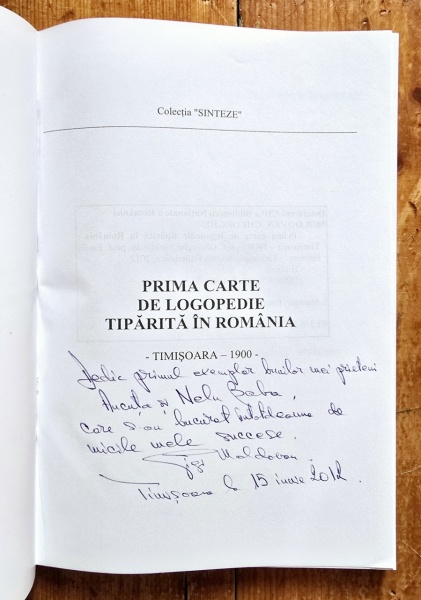 Colecția "SINTEZE"
PRIMA CARTE
DE LOGOPEDIE
TIPĂRITĂ ÎN ROMÂNIA
- TIMIȘOARA – 1900 -
Dedic primul exemplar bunilor mei prieteni
Ancuța și Nelu Baba,
care s-au bucurat întotdeauna de
micile mele succese.
Gigi Moldovan
Timișoara 15 iunie 2012.